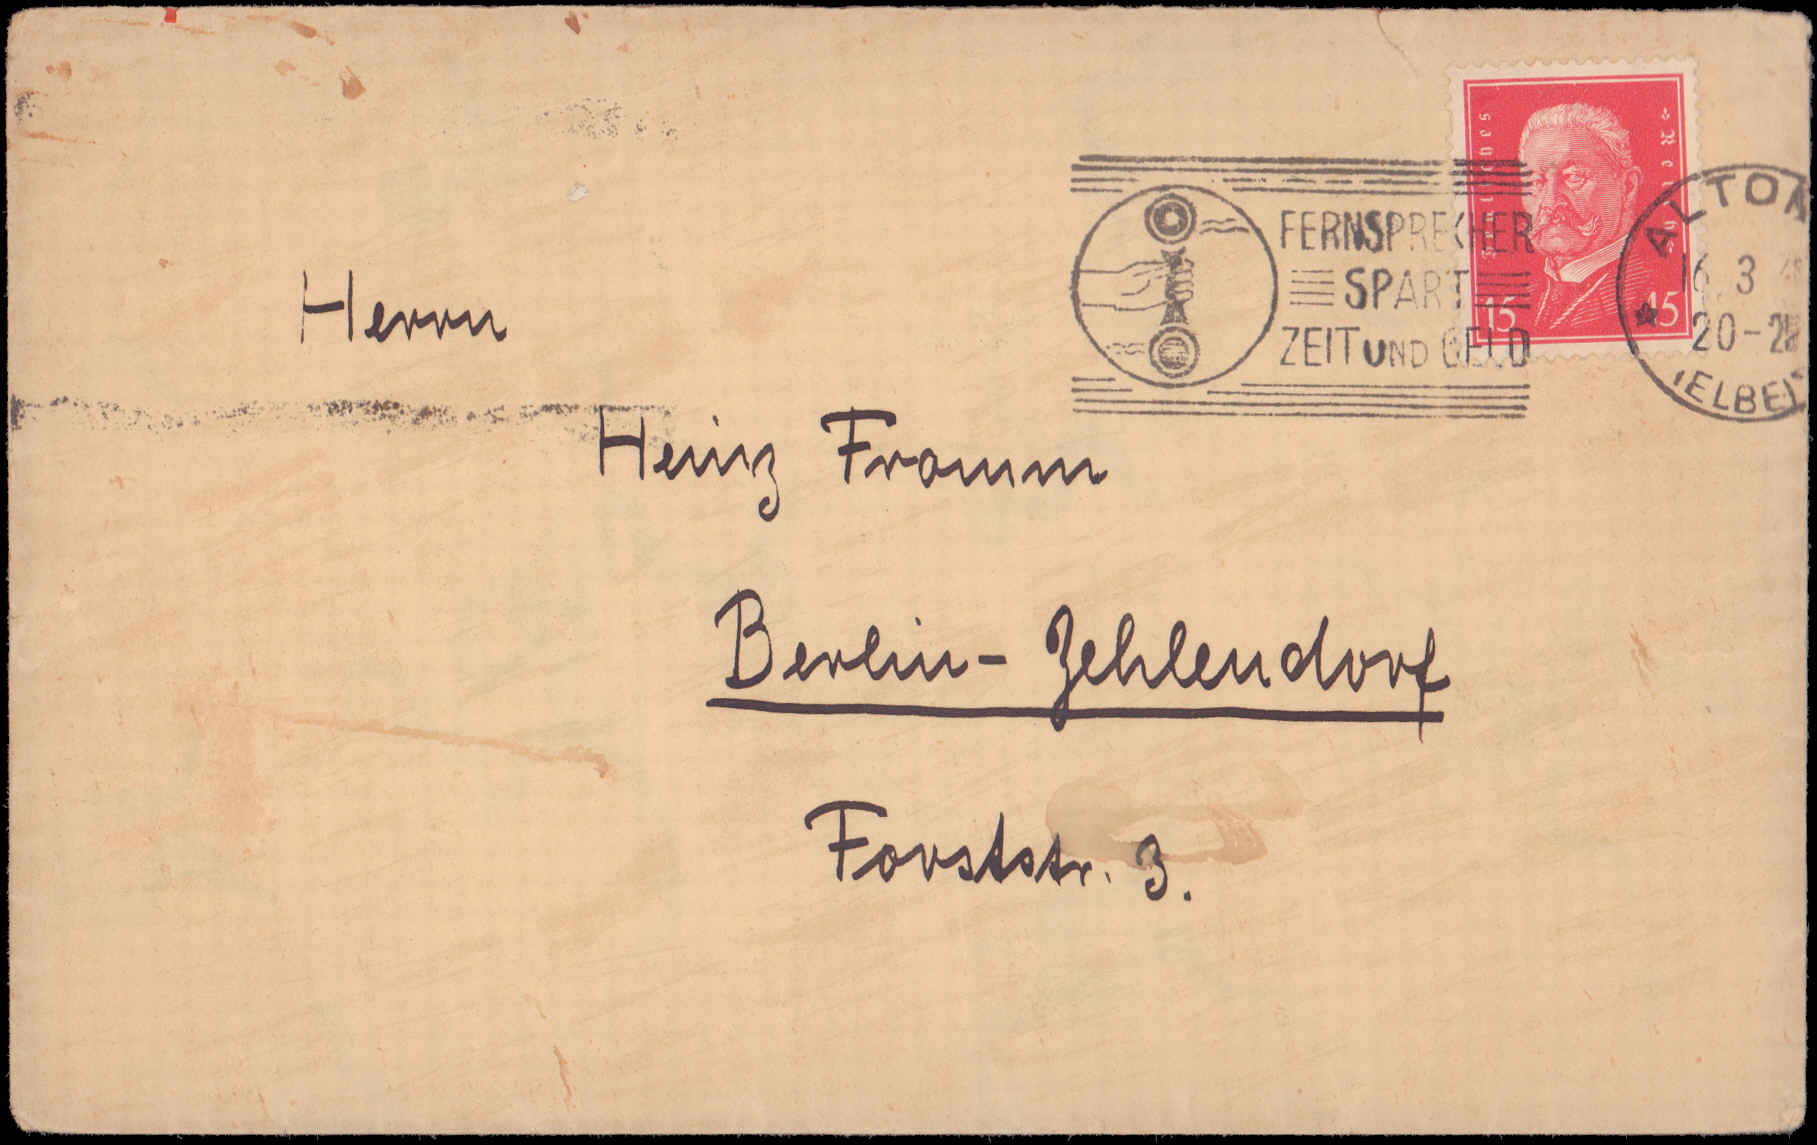 Deutsches Reich
15 15
FERNSPRECHER
SPART
ZEIT UND GELD
ALTON
16. 3
20-21
(ELBE)
Herrn
Heinz Fromm
Berlin-Zehlendorf
Forststr. 3.